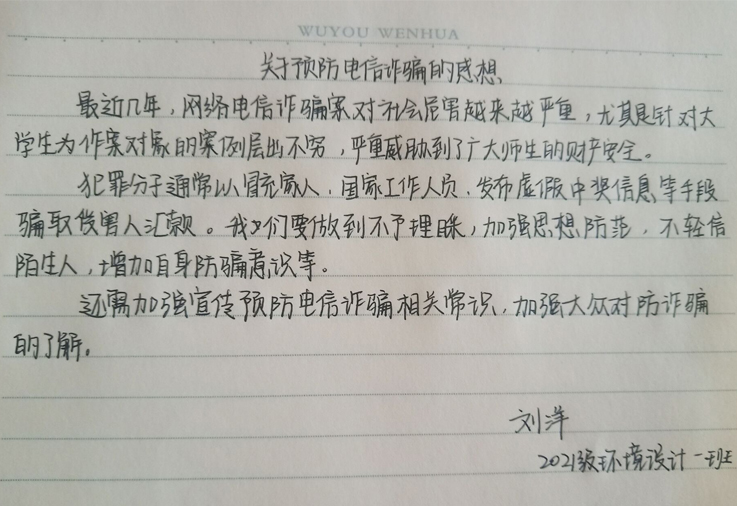 WUYOU WENHUA
关于预防电信诈骗的感想
最近几年，网络电信诈骗案对社会危害越来越严重，尤其是针对大
学生为作案对象的案例层出不穷，严重威胁到了广大师生的财产安全。
犯罪分子通常以冒充家人、国家工作人员、发布虚假中奖信息等手段
骗取受害人汇款。我们要做到不予理睬，加强思想防范，不轻信
陌生人，增加自身防骗意识等。
还需加强宣传预防电信诈骗相关常识，加强大众对防诈骗
的了解。
刘洋
2021级环境设计一班